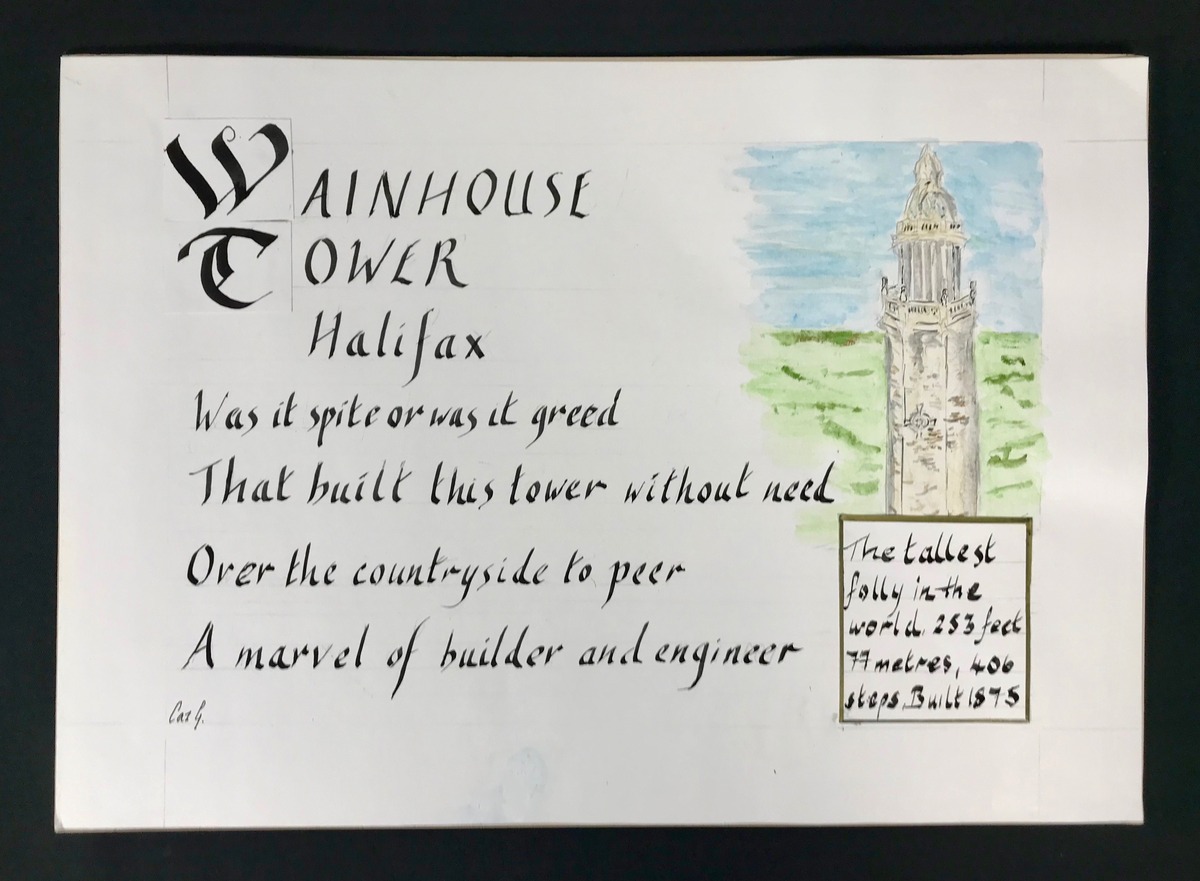 WAINHOUSE
TOWER
Halifax
Was it spite or was it greed
That built this tower without need
Over the countryside to peer
A marvel of builder and engineer
Cat G.
The tallest
folly in the
world. 253 feet
77 metres, 406
steps. Built 1875